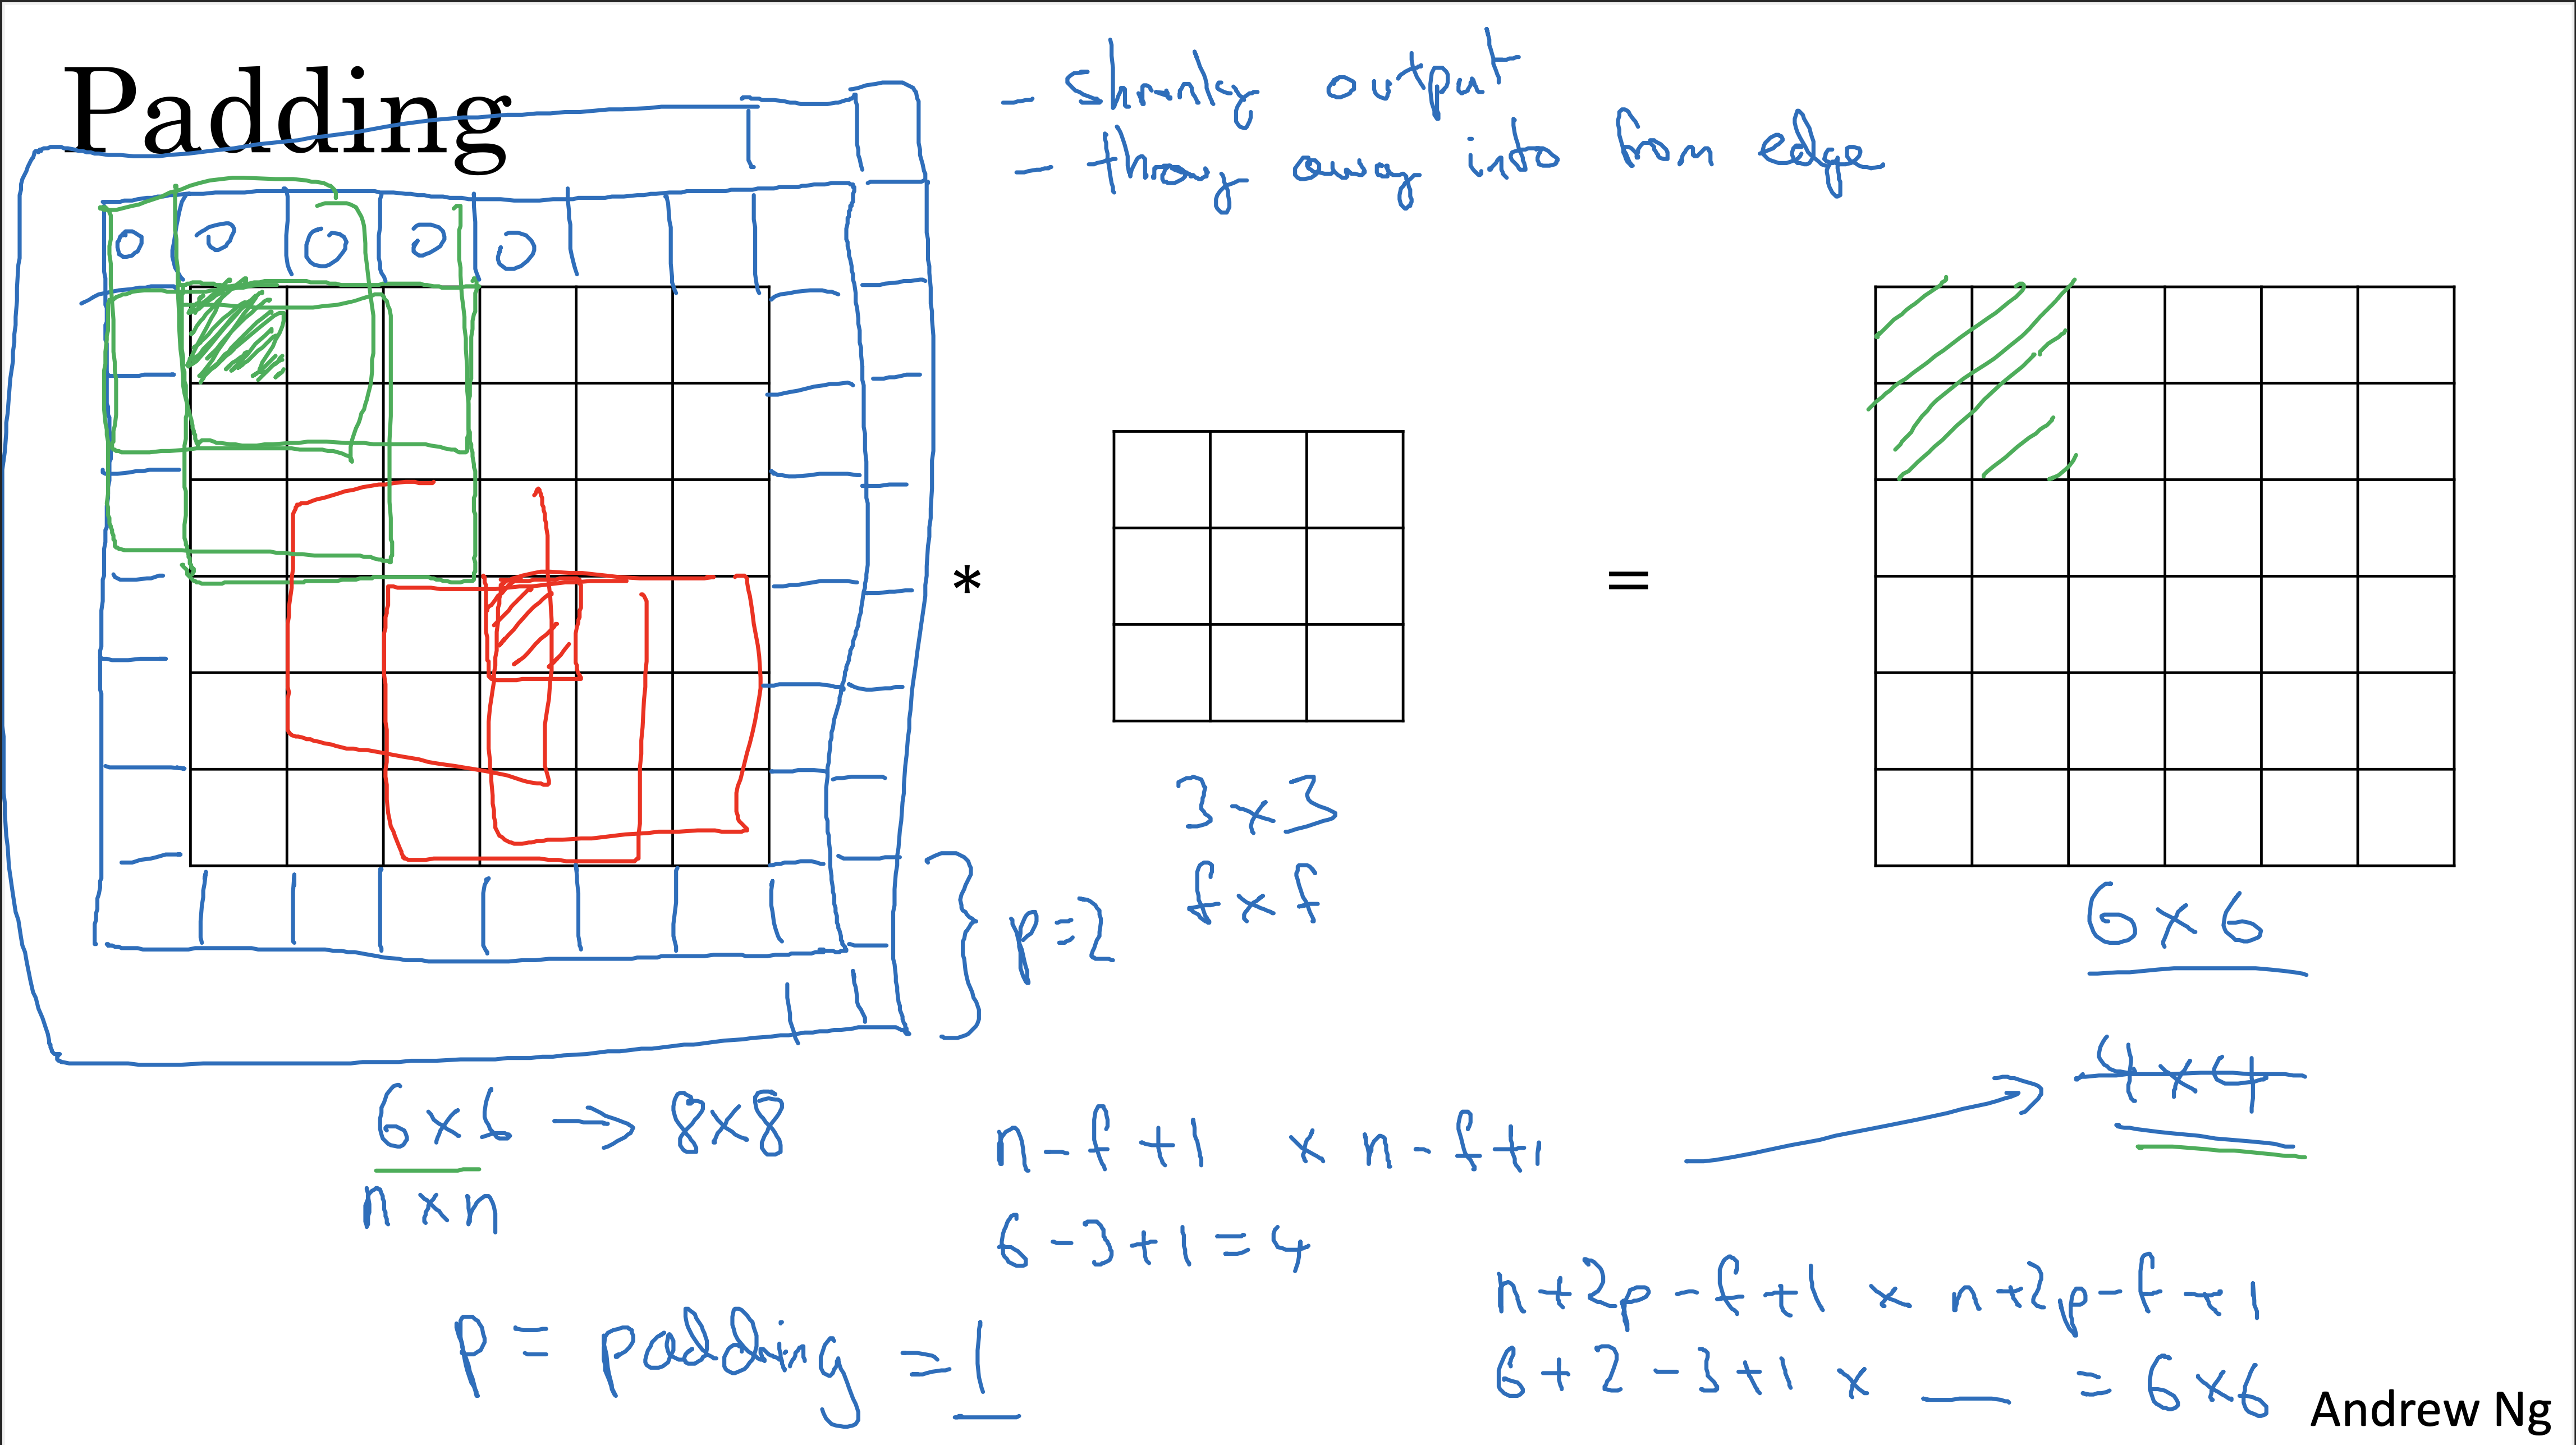 Padding
- shrinky output
- throw away info from edge
0 0 0 0 0
*
=
3 x 3
f x f
p=2
6 x 6
4 x 4
6x6 → 8x8
n x n
n-f+1 x n-f+1
6-3+1=4
p = padding = 1
n+2p-f+1 x n+2p-f+1
6+2-3+1 x __ = 6x6
Andrew Ng